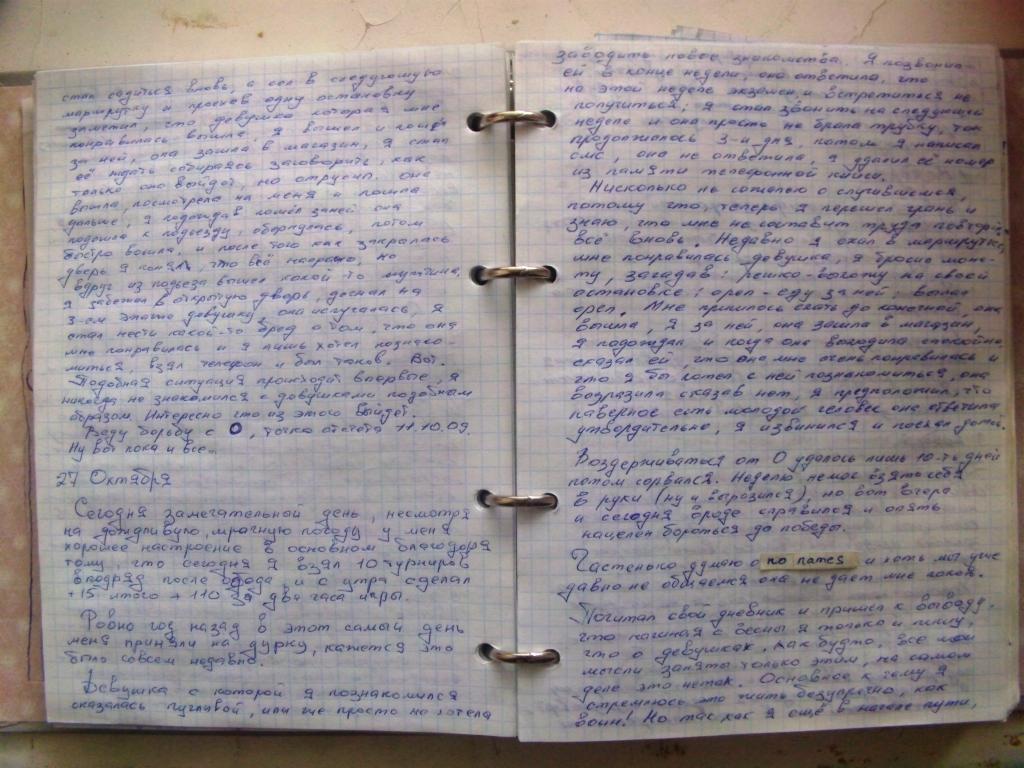 стал садиться вновь, а сел в следующую
маршрутку и проехав одну остановку
заметил, что девушка которая мне
понравилась вышла. Я вышел и пошёл
за ней, она зашла в магазин, я стал
её ждать собираясь заговорить, как
только она выйдет, но струсил. Она
вышла, посмотрела на меня и пошла
дальше, я подождав пошёл за ней она
подошла к подъезду, обернулась, потом
быстро вошла, и после того как закралась
дверь я понял, что всё напрасно, но
вдруг из подъезда вышел какой то мужчина,
я забежал в открытую дверь, догнал на
3-ем этаже девушку, она испугалась, я
стал нести какой-то бред о том, что она
мне понравилась и я лишь хотел познако-
миться, взял телефон и был таков. Вот.
Подобная ситуация происходит впервые, я
никогда не знакомился с девушками подобным
образом. Интересно что из этого выйдет.
Веду борьбу с О, точка отсчёта 11.10.09.
Ну вот пока и все...
27 Октября
Сегодня замечательный день, несмотря
на дождливую, мрачную погоду у меня
хорошее настроение в основном благодаря
тому, что сегодня я взял 10 турниров
подряд после обеда, и с утра сделал
+15 итого +110 за два часа игры.
Ровно год назад в этот самый день
меня приняли на дурку, кажется это
было совсем недавно.
Девушка с которой я познакомился
оказалась пугливой, или же просто не хотела
заводить новое знакомства. Я позвонил
ей в конце недели, она ответила, что
на этой неделе экзамен и встретиться не
получиться; я стал звонить на следующей
неделе и она просто не брала трубку, так
продолжалось 3-и дня, потом я написал
смс, она не ответила, я удалил её номер
из памяти телефонной книги.
Нисколько не сожалею о случившемся,
потому что теперь я перешел грань и
знаю, что мне не составит труда повторить
всё вновь. Недавно я ехал в маршрутке,
мне понравилась девушка, я бросил моне-
ту, загадав: решко-выхожу на своей
остановке; орел-еду за ней; выпал
орел. Мне пришлось ехать до конечной, она
вышла, я за ней, она зашла в магазин,
я подождал и когда она выходила спокойно
сказал ей, что она мне очень понравилась и
что я бы хотел с ней познакомиться, она
возразила сказав нет, я предположил, что
наверное есть молодой человек она ответила
утвордительно, я извинился и поехал домой.
Воздерживаться от О удалось лишь 10-ть дней
потом сорвался. Неделю не мог взять себя
в руки (ну и выразился), но вот вчера
и сегодня вроде справился и опять
нацелен бороться до победы.
Частенько думаю о no names и хоть мы уже
давно не общаемся она не дает мне покоя.
Почитал свой дневник и пришел к выводу,
что начиная с весны я только и пишу,
что о девушках, как будто, все мои
мысли заняты только этим, на самом
деле это не так. Основное к чему я
стремлюсь это жить безупречно, как
воин! Но так как я ещё в начале пути,